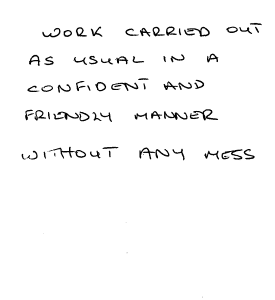 WORK CARRIED OUT
AS USUAL IN A
CONFIDENT AND
FRIENDLY MANNER
WITHOUT ANY MESS